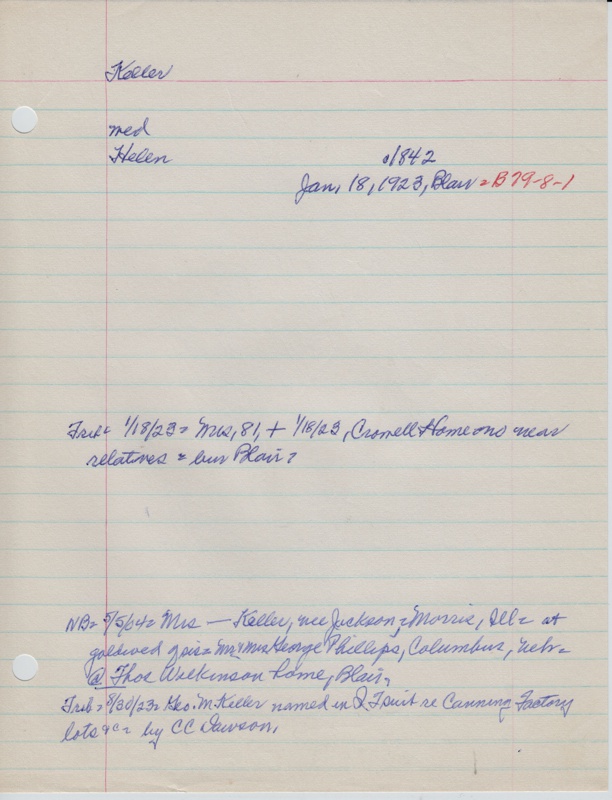 Keller
med
Helen c1842
Jan, 18, 1923, Blair = B79-8-1
Trib = 1/18/23 = Mrs, 81, + 1/18/23, Crowell Home no near
relatives = bur Blair =
NB = 5/5/64 = Mrs — Keller, nee Jackson, = Morris, Ill = at
goldwed Mr & Mrs George Phillips, Columbus, Neb =
@ Thos Wilkinson home, Blair,
Trib = 8/30/23 = Geo. M. Keller named in Q T suit re Canning Factory
lots &c = by CC Dawson,